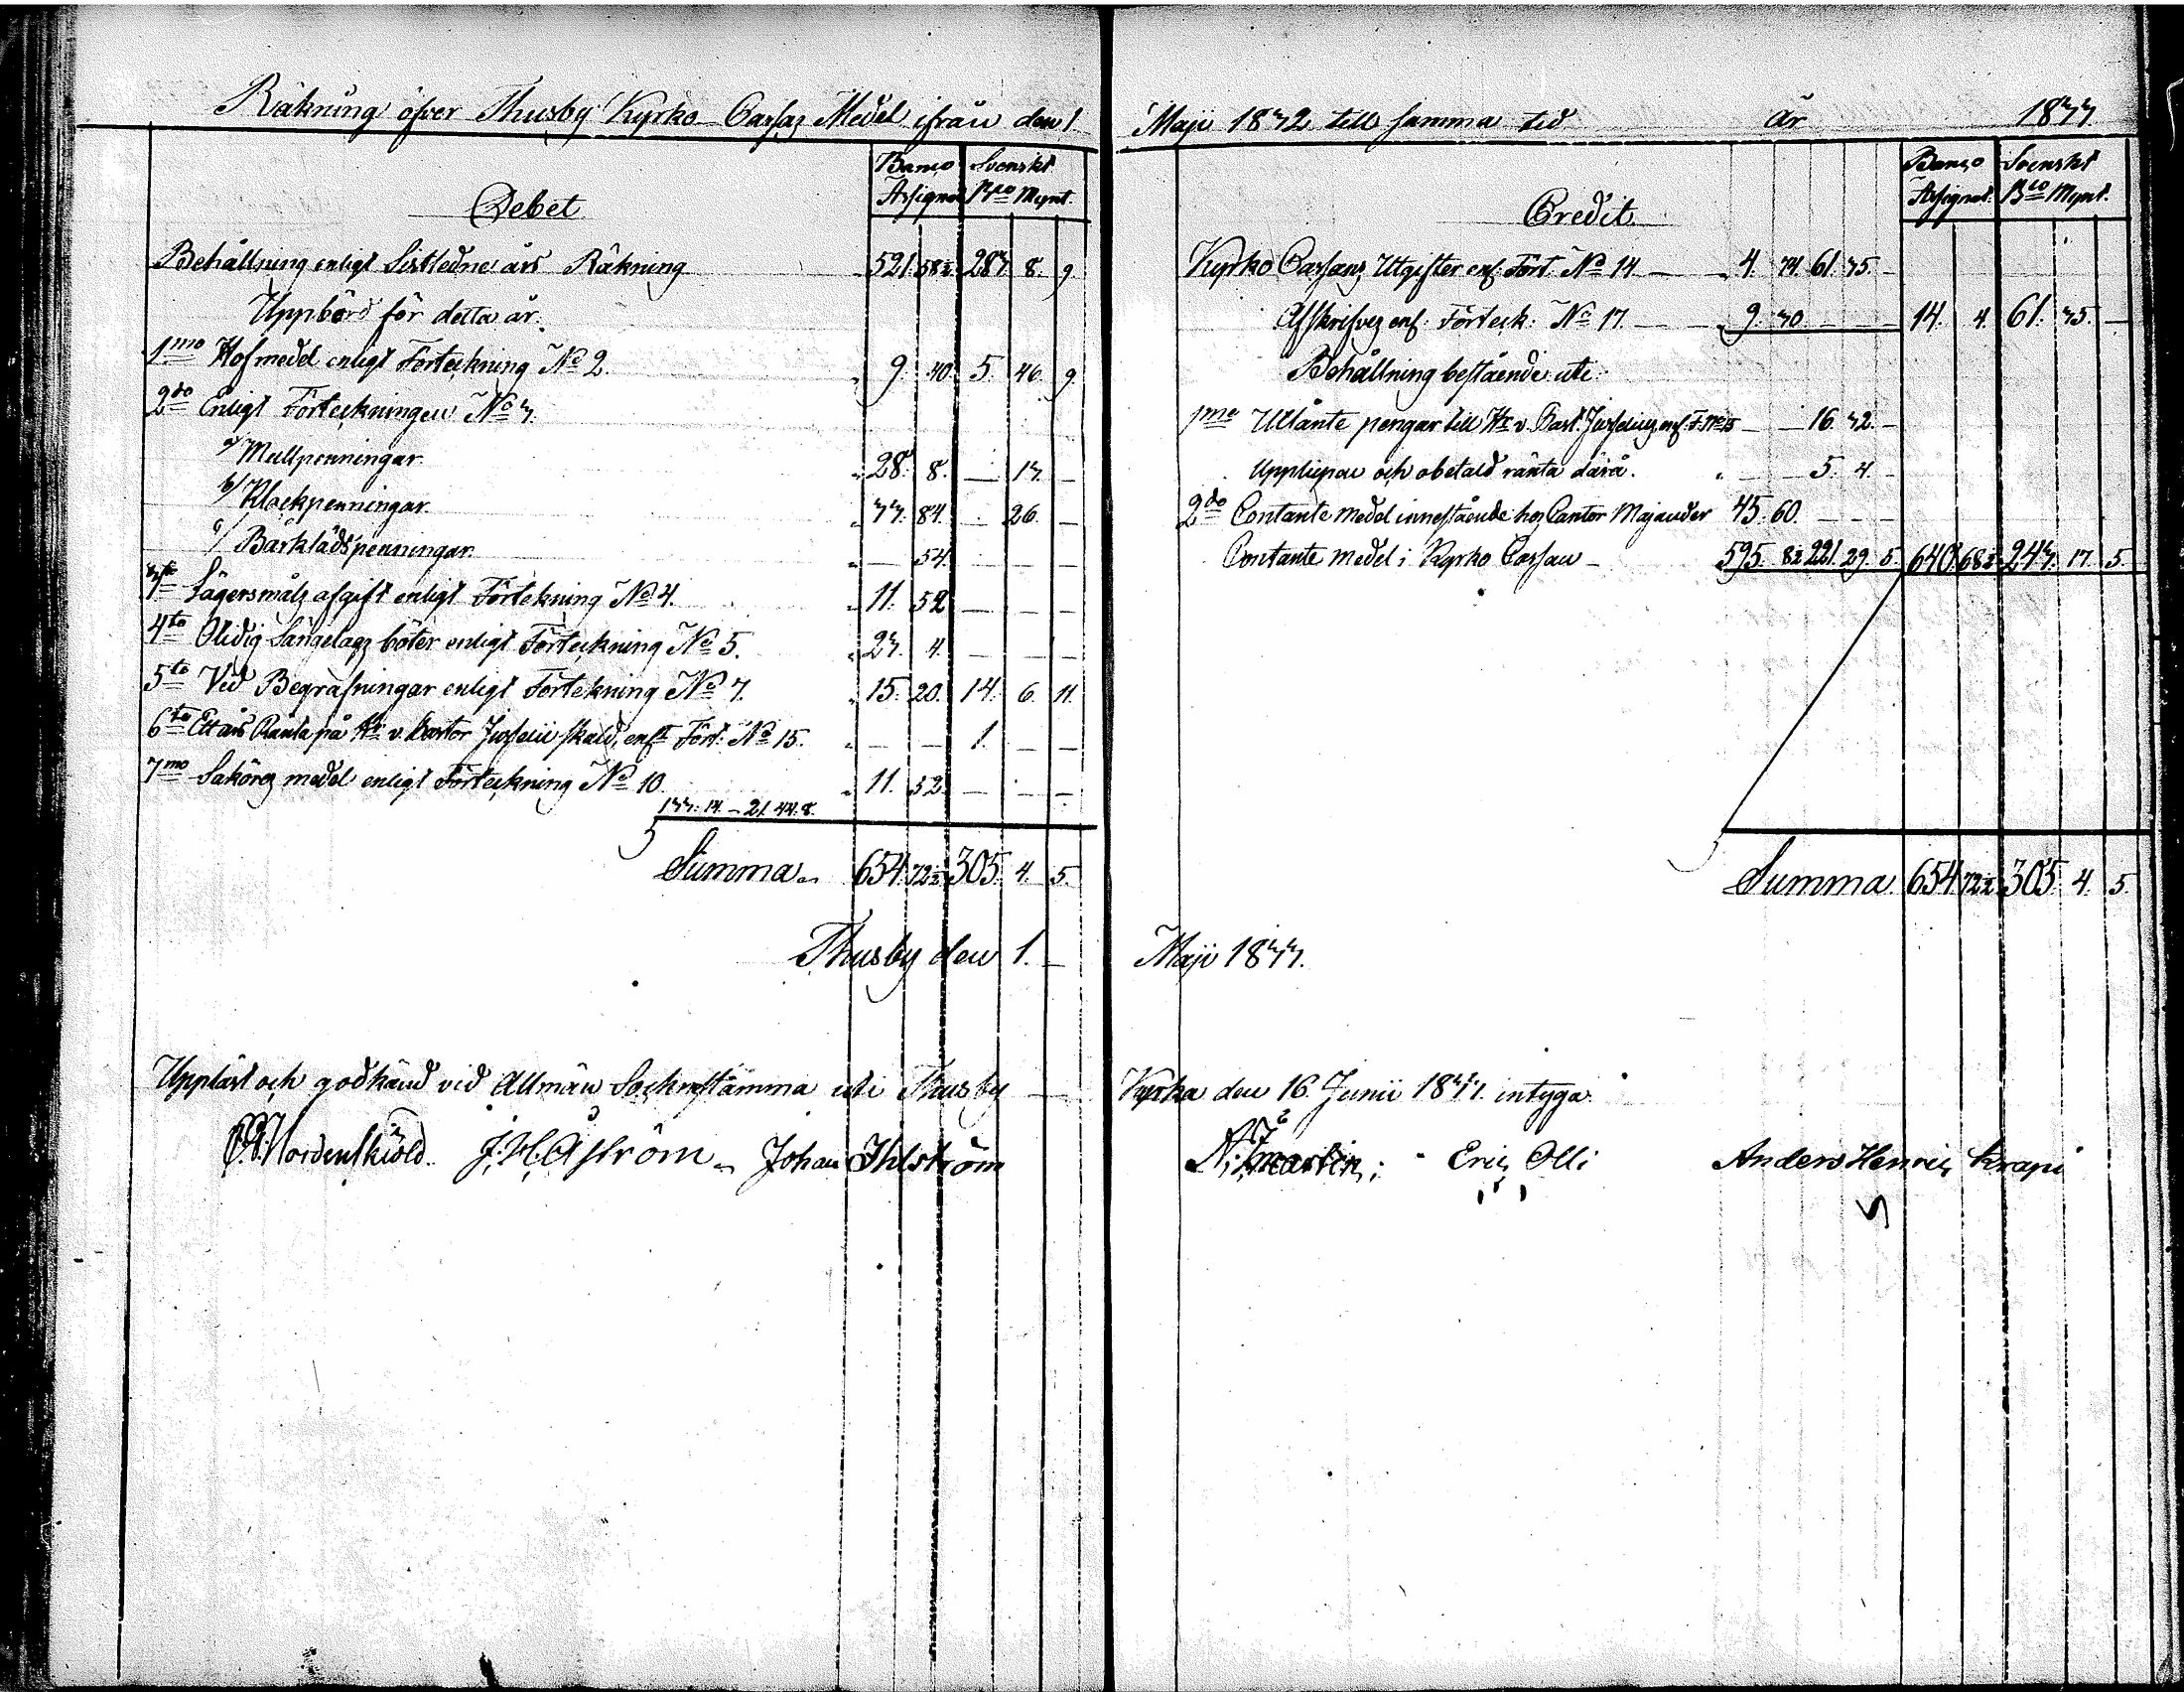 Räkning öfver Thusby Kyrko Cassas Medel ifrån den 1 Maji 1832 till samma tid År 1833.
Banco Assignat. Svenskt Bco Mynt.
Debet
Behållning enligt Sistledne års Räkning 521. 58½ 283. 8. 9.
Uppbörd för detta år.
1mo Hofmedel enligt Förteckning No 2. 9. 40. 5. 46. 9
2do Enligt Förteckningen No 3.
a/ Mullpenningar 28. 8. — 13. —
b/ Klockpenningar 33. 84. — 26. —
c/ Bårklädspenningar — 54. — — —
3tio Lägersmåls afgift enligt Förtekning No 4. 11. 52 — — —
4to Olidig Sängelags böter enligt Förteckning No 5. 23. 4. — — —
5to Vid Begrafningar enligt Förtekning No 7. 15. 20. 14. 6. 11.
6to Ett års Ränta på Hr v. Pastor Juselii skuld, enligt Fört. No 15. — — 1. — —
7mo Saköres medel enligt Förteckning No 10. 11. 52. — — —
133. 14. — 21. 44. 8.
Summa 654. 72½ 305. 4. 5.
Banco Assignat. Svenskt Bco Mynt.
Credit
Kyrko Cassans Utgifter enl. Fört. No 14 — 4. 34. 61. 35. —
Afskrifves enl. Förteck. No 17. — 9. 70. — 14. 4. 61. 35. —
Behållning bestående uti:
1mo Utlånte pengar till Hr v. Past. Juselius enl. F. No 15 — — 16. 32. —
Upplupen och obetald ränta därå. — — 5. 4. —
2do Contante medel innestående hos Cantor Majander 45. 60. — — —
Contante medel i Kyrko Cassan — 595. 8½ 221. 29. 5. 640. 68½ 243. 17. 5.
Summa 654. 72½ 305. 4. 5.
Thusby den 1. Maji 1833.
Uppläst och godkänd vid Allmän Sockenstämma uti Thusby Kyrka den 16 Junii 1833. intyga.
Nordenskiöld. J. H. Åström Johan Ihlström N. Martin; Eric Olli Anders Henric Krapi